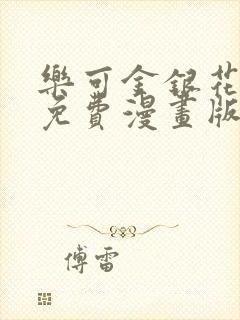 樂可金銀花
免費漫畫版
傅雷